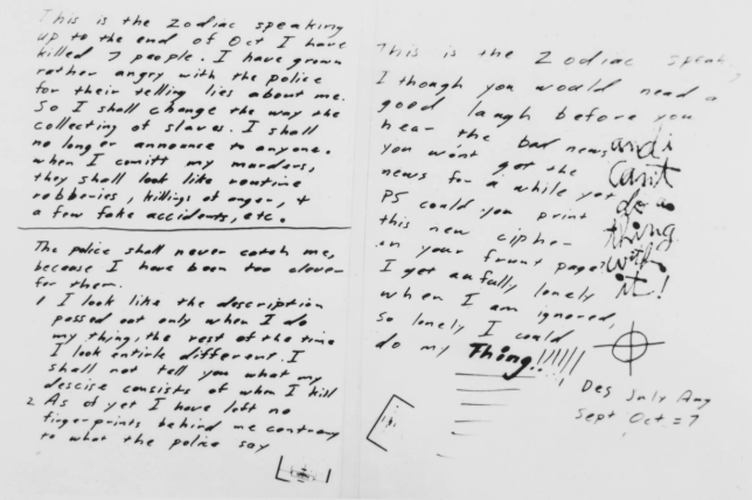 This is the Zodiac speaking
up to the end of Oct I have
killed 7 people. I have grown
rather angry with the police
for their telling lies about me.
So I shall change the way the
collecting of slaves. I shall
no longer announce to anyone.
when I comitt my murders,
they shall look like routine
robberies, killings of anger, +
a few fake accidents, etc.
The police shall never catch me,
because I have been too clever
for them.
1 I look like the description
passed out only when I do
my thing, the rest of the time
I look entirle different. I
shall not tell you what my
descise consists of when I kill
2 As of yet I have left no
fingerprints behind me contrary
to what the police say
This is the Zodiac speaking
I though you would need a
good laugh before you
hear the bad news
you won't get the
news for a while yet
PS could you print
this new cipher
in your frunt page?
I get awfully lonely
when I am ignored,
so lonely I could
do my Thing!!!!!!
and i
can't
do a
thing
with
it!
Des July Aug
Sept Oct = 7